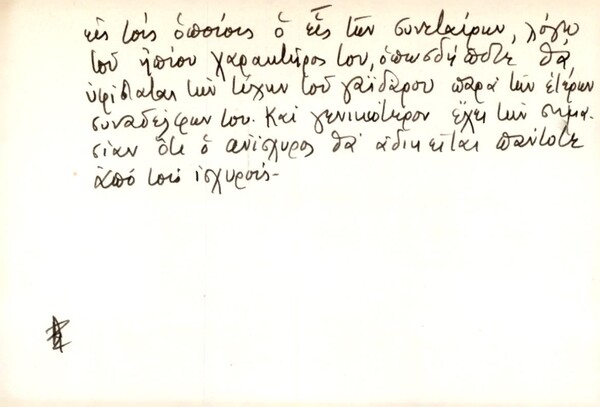 εἰς τοὺς ὁποίους ὁ εἷς τῶν συνεταίρων, λόγῳ
τοῦ ἠπίου χαρακτῆρος του, ὁπωσδήποτε θὰ
ὑφίσταται τὴν τύχην τοῦ γαϊδάρου παρὰ τῶν ἑτέρων
συναδέλφων του. Καὶ γενικώτερον ἔχει τὴν σημα-
σίαν ὅτι ὁ ἀνίσχυρος θὰ ἀδικεῖται πάντοτε
ἀπὸ τοὺς ἰσχυρούς-